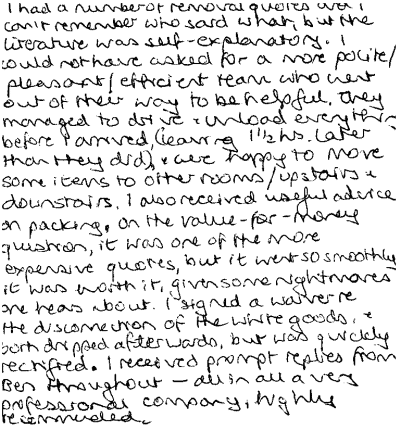 I had a number of removal quotes
can't remember who said what, but the
literature was self-explanatory. I
could not have asked for a more polite/
pleasant/efficient team who went
out of their way to be helpful. They
managed to drive + unload everything
before I arrived, (leaving 1 1/2 hrs. later
than they did), + were happy to move
some items to other rooms/upstairs +
downstairs. I also received useful advice
on packing. On the value-for-money
question, it was one of the more
expensive quotes, but it went so smoothly
it was worth it, given some nightmares
one hears about. I signed a waiver re
the disconnection of the white goods, +
both dripped afterwards, but was quickly
rectified. I received prompt replies from
Ben throughout – all in all a very
professional company, highly
recommended.